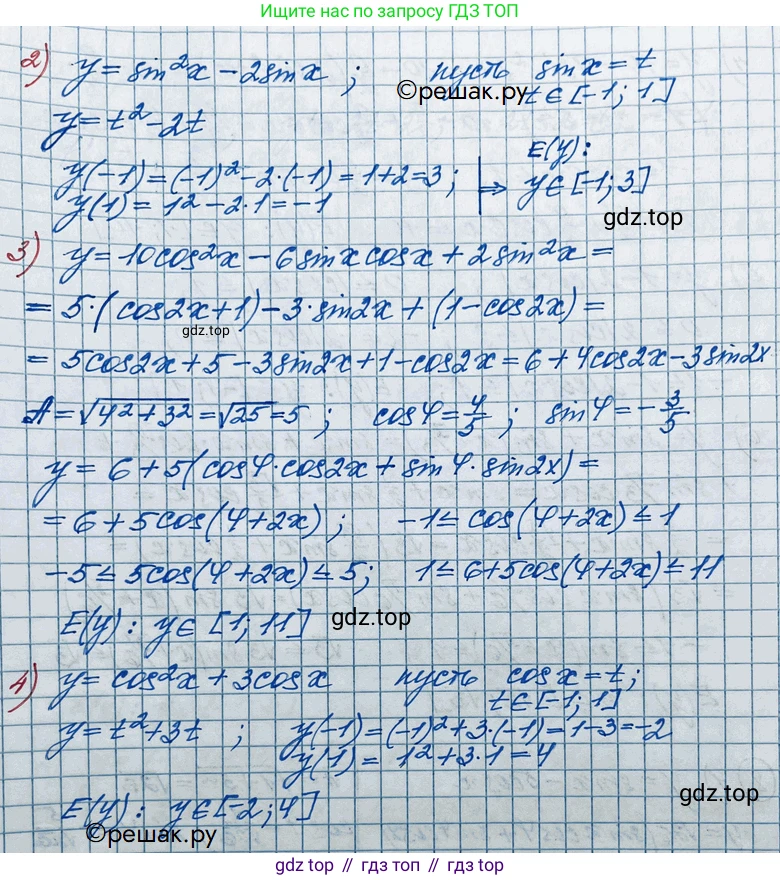 Ищите нас по запросу ГДЗ ТОП
2) y = sin²x − 2sinx ; пусть sinx = t
©решак.ру t ∈ [−1; 1]
y = t² − 2t
y(−1) = (−1)² − 2·(−1) = 1+2=3 ; E(y):
y(1) = 1² − 2·1 = −1 ⇒ y ∈ [−1; 3]
gdz.top
3) y = 10cos²x − 6sinx cosx + 2sin²x =
= 5·(cos2x+1) − 3·sin2x + (1−cos2x) =
gdz.top
= 5cos2x + 5 − 3sin2x + 1 − cos2x = 6 + 4cos2x − 3sin2x
A = √4²+3² = √25 = 5 ; cosφ = 4/5 ; sinφ = −3/5
y = 6 + 5(cosφ·cos2x + sinφ·sin2x) =
= 6 + 5cos(φ+2x) ; −1 ≤ cos(φ+2x) ≤ 1
−5 ≤ 5cos(φ+2x) ≤ 5; 1 ≤ 6+5cos(φ+2x) ≤ 11
E(y): y ∈ [1; 11] gdz.top
4) y = cos²x + 3cosx пусть cosx = t;
t ∈ [−1; 1]
y = t² + 3t ; y(−1) = (−1)² + 3·(−1) = 1−3 = −2
y(1) = 1² + 3·1 = 4
gdz.top
E(y): y ∈ [−2; 4]
©решак.ру
gdz top // гдз топ // gdz.top